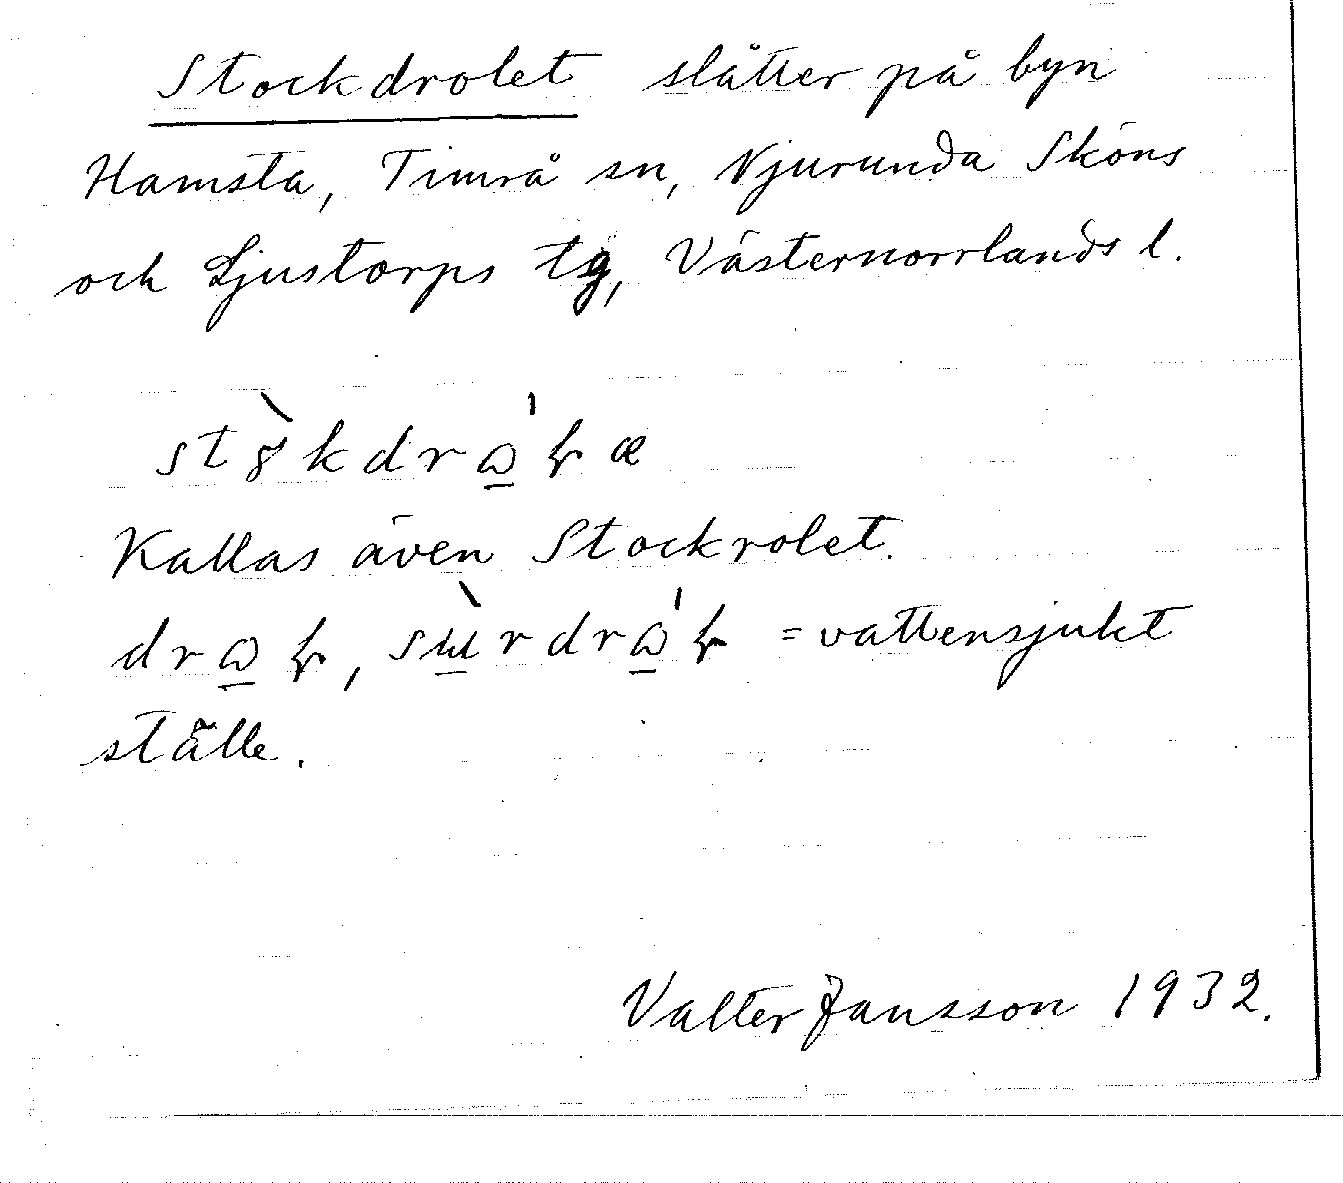 Stockdrolet slåtter på byn
Hamsta, Timrå sn, Njurunda Sköns
och Ljustorps tg, Västernorrlands l.
Kallas även Stockrolet.
= vattensjukt
ställe.
Valter Jansson 1932.